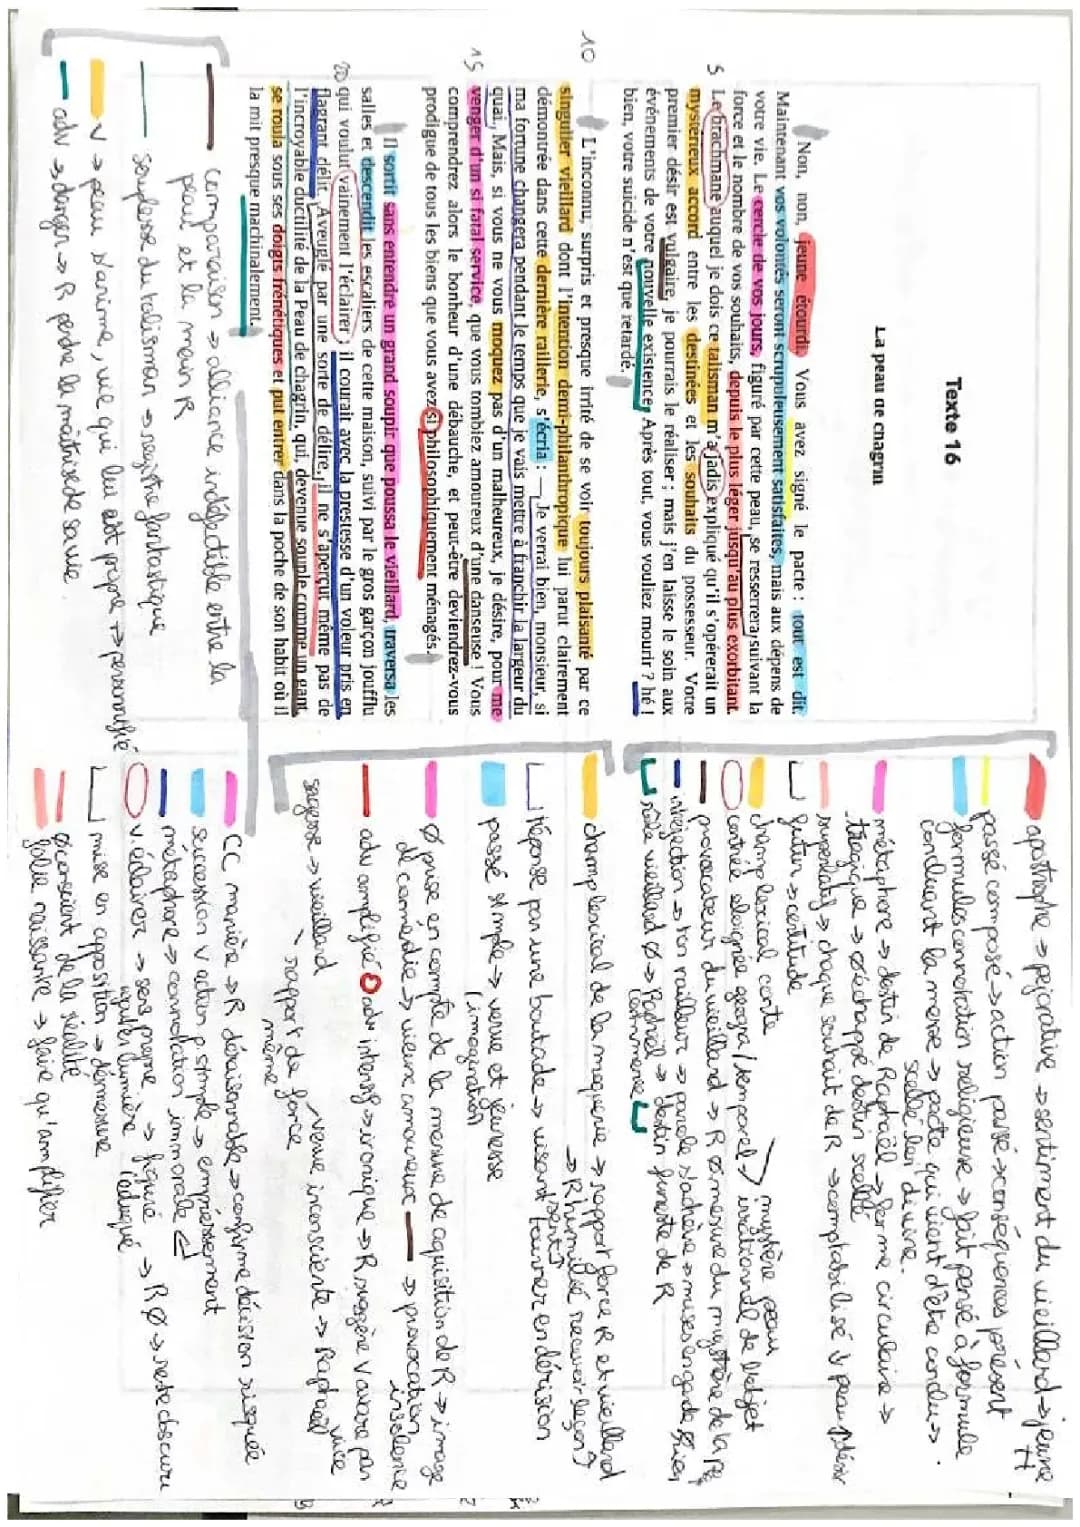 Texte 16
La peau de chagrin
Non, non, jeune étourdi. Vous avez signé le pacte : tout est dit.
Maintenant vos volontés seront scrupuleusement satisfaites, mais aux dépens de
votre vie. Le cercle de vos jours, figuré par cette peau, se resserrera suivant la
force et le nombre de vos souhaits, depuis le plus léger jusqu'au plus exorbitant.
5 Le brachmane auquel je dois ce talisman m'a jadis expliqué qu'il s'opérerait un
mystérieux accord entre les destinées et les souhaits du possesseur. Votre
premier désir est vulgaire, je pourrais le réaliser ; mais j'en laisse le soin aux
événements de votre nouvelle existence. Après tout, vous vouliez mourir ? hé !
bien, votre suicide n'est que retardé.
10 L'inconnu, surpris et presque irrité de se voir toujours plaisanté par ce
singulier vieillard dont l'intention demi-philanthropique lui parut clairement
démontrée dans cette dernière raillerie, s'écria : – Je verrai bien, monsieur, si
ma fortune changera pendant le temps que je vais mettre à franchir la largeur du
quai. Mais, si vous ne vous moquez pas d'un malheureux, je désire, pour me
15 venger d'un si fatal service, que vous tombiez amoureux d'une danseuse ! Vous
comprendrez alors le bonheur d'une débauche, et peut-être deviendrez-vous
prodigue de tous les biens que vous avez si philosophiquement ménagés.
Il sortit sans entendre un grand soupir que poussa le vieillard, traversa les
salles et descendit les escaliers de cette maison, suivi par le gros garçon joufflu
20 qui voulut vainement l'éclairer ; il courait avec la prestesse d'un voleur pris en
flagrant délit. Aveuglé par une sorte de délire, il ne s'aperçut même pas de
l'incroyable ductilité de la Peau de chagrin, qui, devenue souple comme un gant,
se roula sous ses doigts frénétiques et put entrer dans la poche de son habit où il
la mit presque machinalement.
comparaison → alliance indéfectible entre la
peau et la main R
souplesse du talisman → registre fantastique
V → peau s'anime, vie qui lui est propre → personnifié
adv → danger → R perd la maîtrise de sa vie
apostrophe → péjorative → sentiment du vieillard → jeune H
passé composé → action passé → conséquences présent
formules connotation religieuse → fait pensé à formule
scellé lien divine.
concluant la messe → pacte qui vient d'être conclu →
métaphore → destin de Raphaël → forme circulaire →
tragique → Ø échappé destin scellé
superlatif → chaque souhait de R → comptabilisé ↓ peau désir
futur → certitude
champ lexical conte → mystère peau
contrée éloignée géogra/temporel → irrationnel de l'objet
provocateur du vieillard → R Ø mesure du mystère de la P
interjection → ton railleur → parole s'achève → mises en garde
rôle vieillard Ø → Raphaël → destin funeste de R
l'emmène
champ lexical de la moquerie → rapport force R et vieillard
→ R humilié recevoir leçon
réponse par une boutade → visant tourner en dérision
passé simple → verve et jeunesse
(imagination)
Ø prise en compte de la mesure de aquisition de R → image
de comédie → vieux amoureux → provocation
insolence
adv amplifié adv intensif → ironique → R suggère V avare par
vice
sagesse → vieillard verve inconsciente → Raphaël
rapport de force
même
CC manière → R déraisonnable → confirme décision risquée
succession V action p. simple → empressement
métaphore → connotation immorale
V. éclairer → sens propre → figuré → R Ø → reste obscur
lumière éduqué
mise en apposition → démesure
Ø conscient de la réalité
folie naissante → faire qu'amplifier